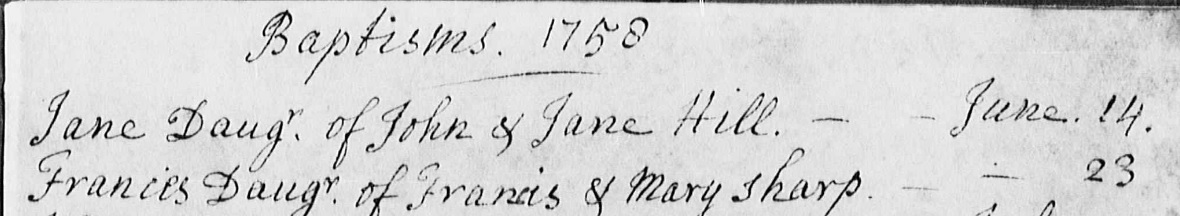 Baptisms. 1758
Jane Daugr. of John & Jane Hill. — — June. 14.
Francies Daugr. of Francis & Mary Sharp. — — 23